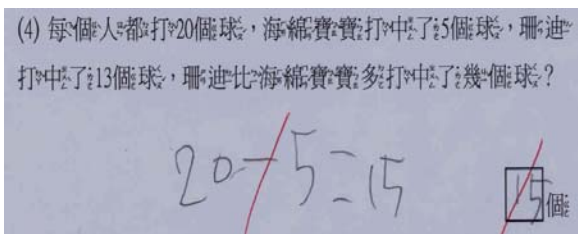 (4) 每個人都打20個球，海綿寶寶打中了5個球，珊迪
打中了13個球，珊迪比海綿寶寶多打中了幾個球？
20-5=15
15個